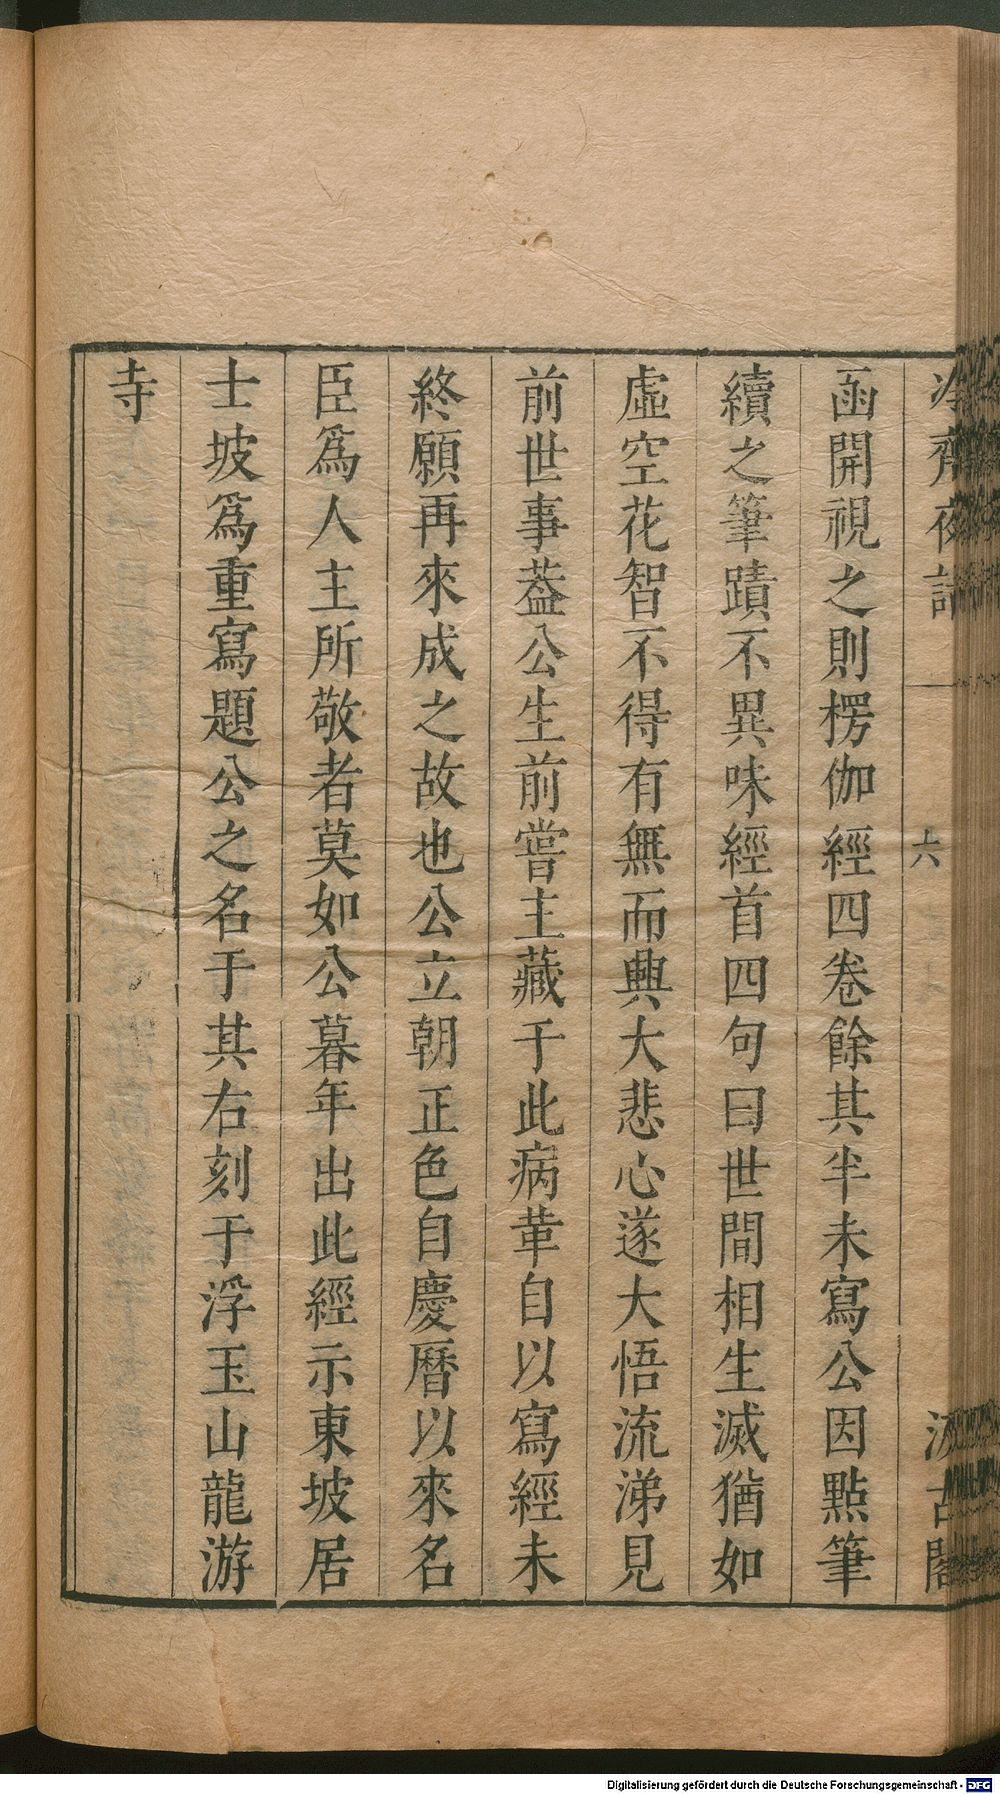 冷齋夜話
六
汲古閣
函開視之則楞伽經四卷餘其半未寫公因點筆
續之筆蹟不異味經首四句曰世間相生滅猶如
虛空花智不得有無而興大悲心遂大悟流涕見
前世事葢公生前嘗主藏于此病革自以寫經未
終願再來成之故也公立朝正色自慶曆以來名
臣爲人主所敬者莫如公暮年出此經示東坡居
士坡爲重寫題公之名于其右刻于浮玉山龍游
寺
Digitalisierung gefördert durch die Deutsche Forschungsgemeinschaft - DFG